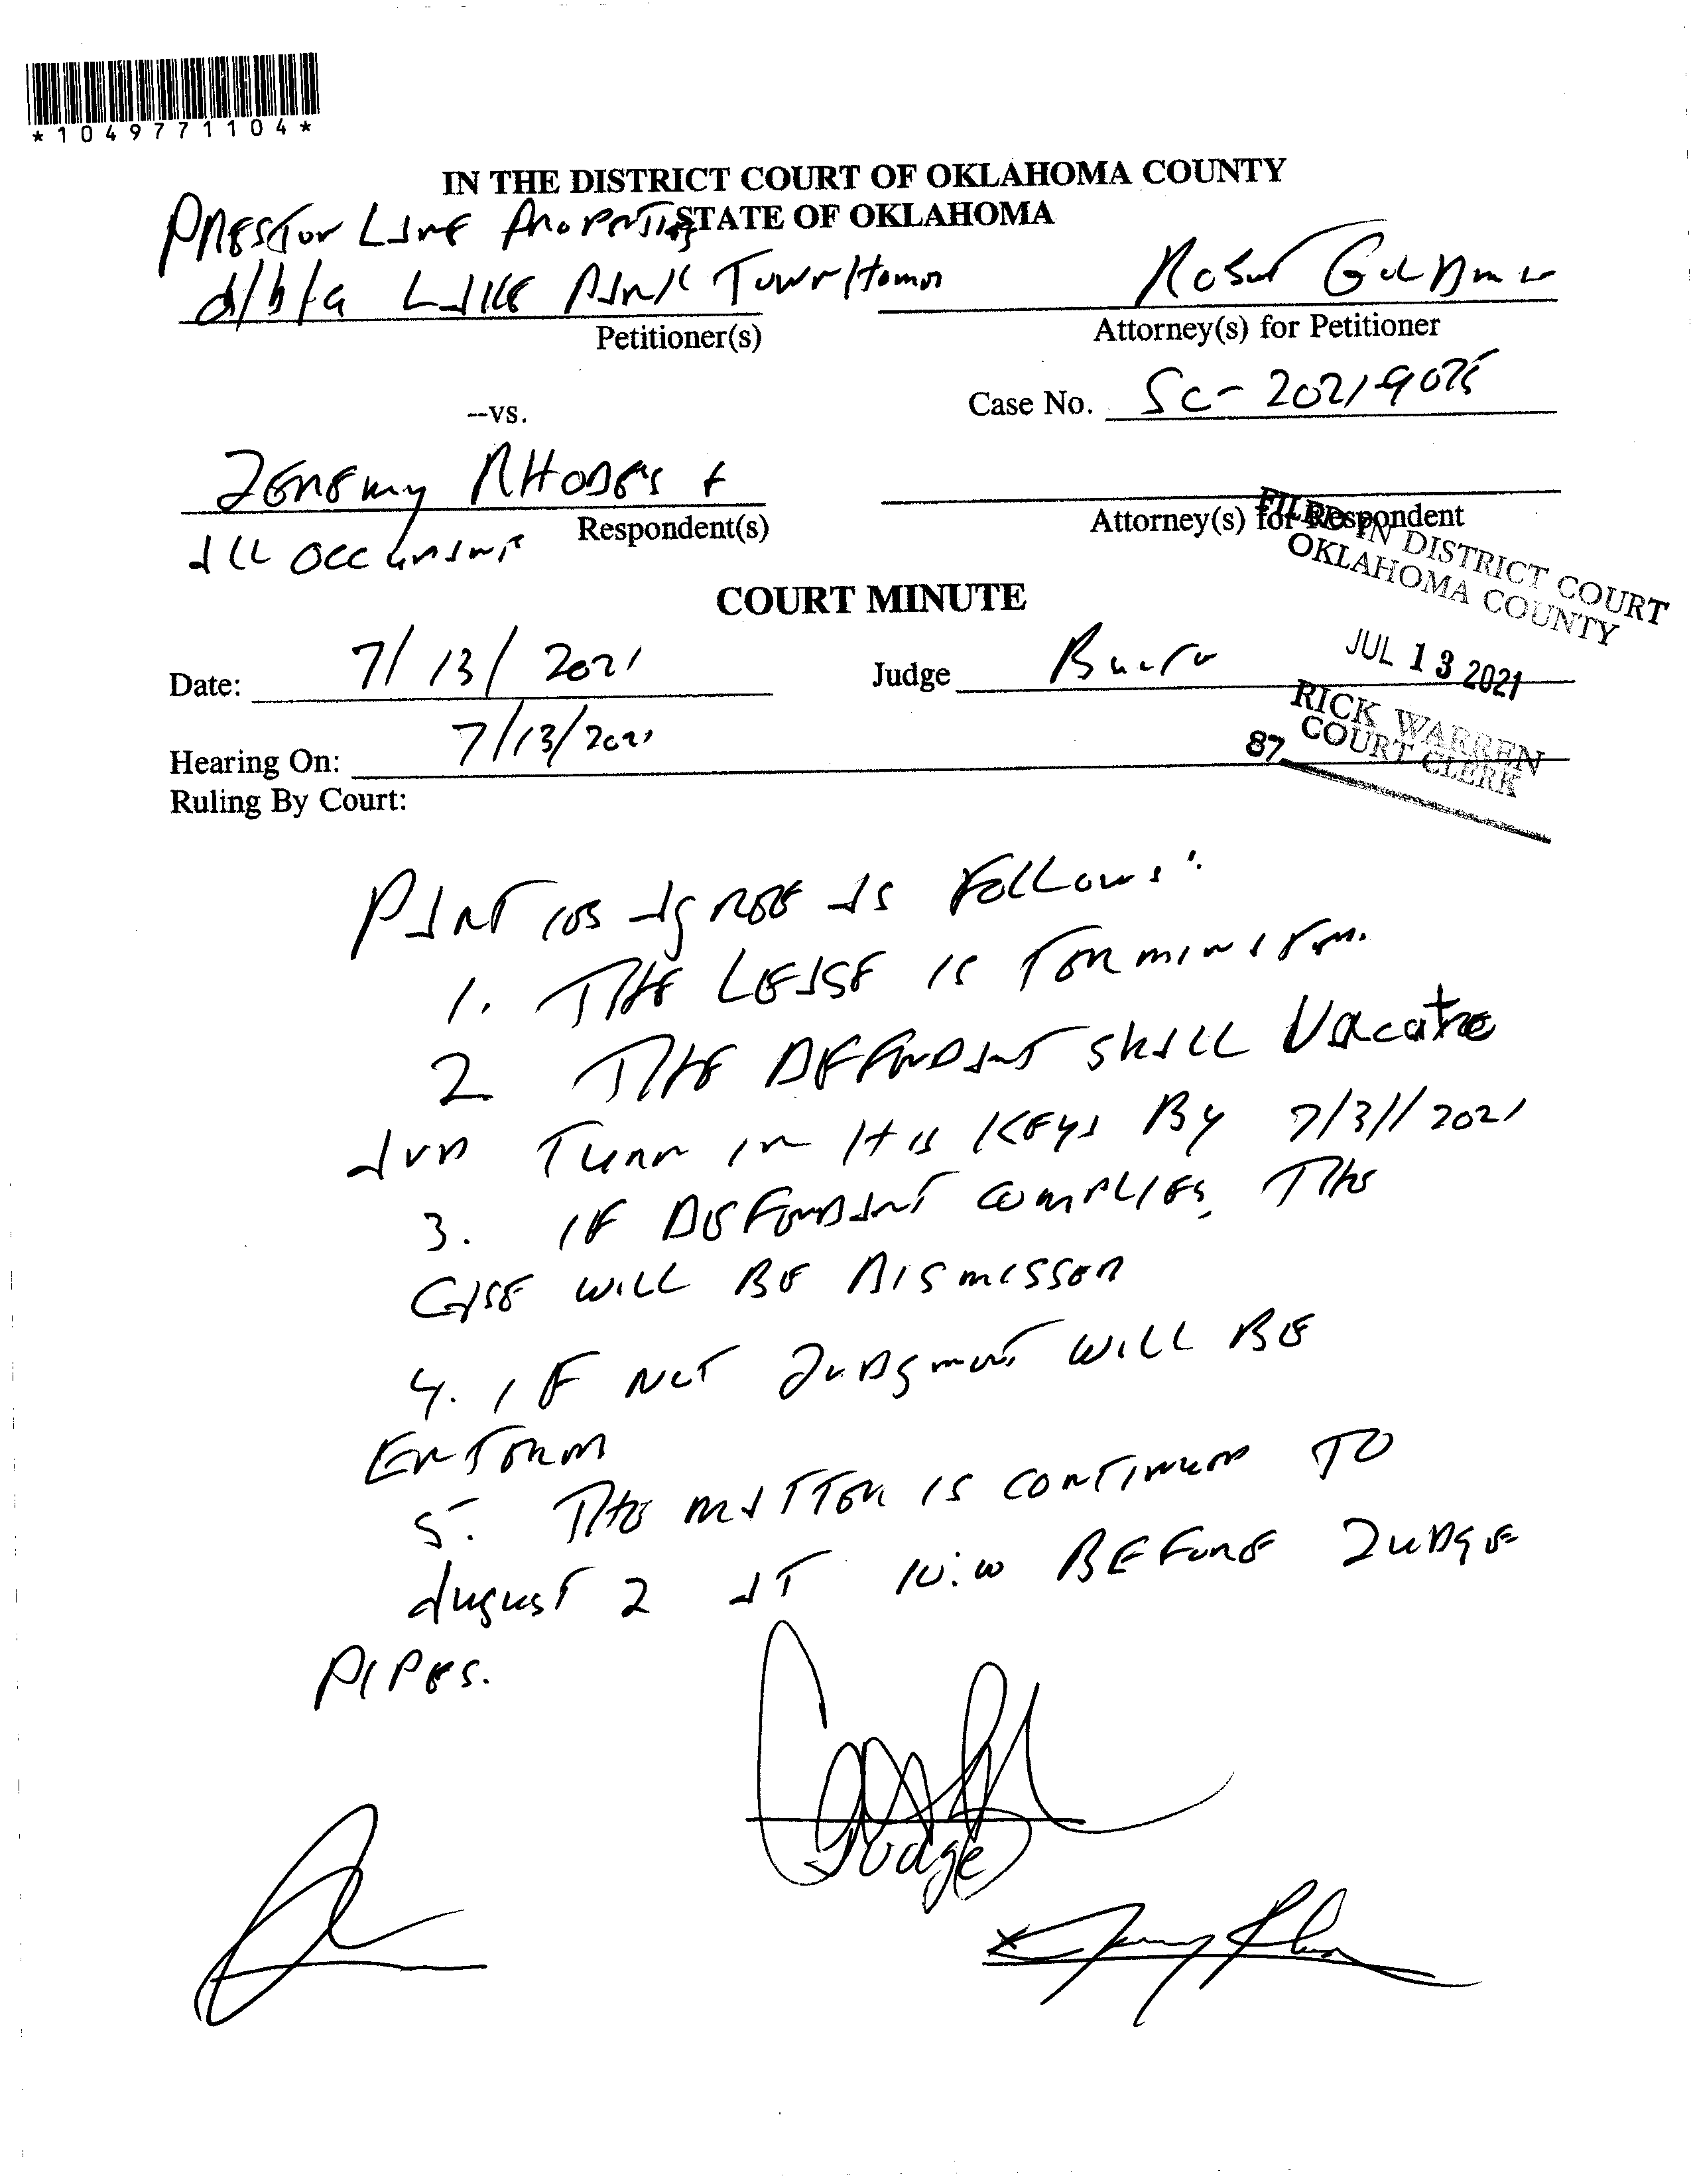 *1049771104*
IN THE DISTRICT COURT OF OKLAHOMA COUNTY
STATE OF OKLAHOMA
PRESTON LANE PROPERTIES
d/b/a LAKE PARK TOWNHOMES
Petitioner(s)
ROBERT GOLDMAN
Attorney(s) for Petitioner
--vs.
Case No. SC-2021-9075
JEREMY RHODES +
Respondent(s)
ALL OCCUPANTS
Attorney(s) for Respondent
FILED IN DISTRICT COURT
OKLAHOMA COUNTY
JUL 13 2021
RICK WARREN
COURT CLERK
87
COURT MINUTE
Date: 7/13/2021
Judge
Hearing On: 7/13/2021
Ruling By Court:
PARTIES AGREE AS FOLLOWS:
1. THE LEASE IS TERMINATED.
2 THE DEFENDANT SHALL Vacate
AND TURN IN HIS KEYS BY 7/31/2021
3. IF DEFENDANT COMPLIES, THE
CASE WILL BE DISMISSED
4. IF NOT JUDGMENT WILL BE
ENTERED
5. THE MATTER IS CONTINUED TO
AUGUST 2 AT 10:00 BEFORE JUDGE
PIPES.
Judge
X